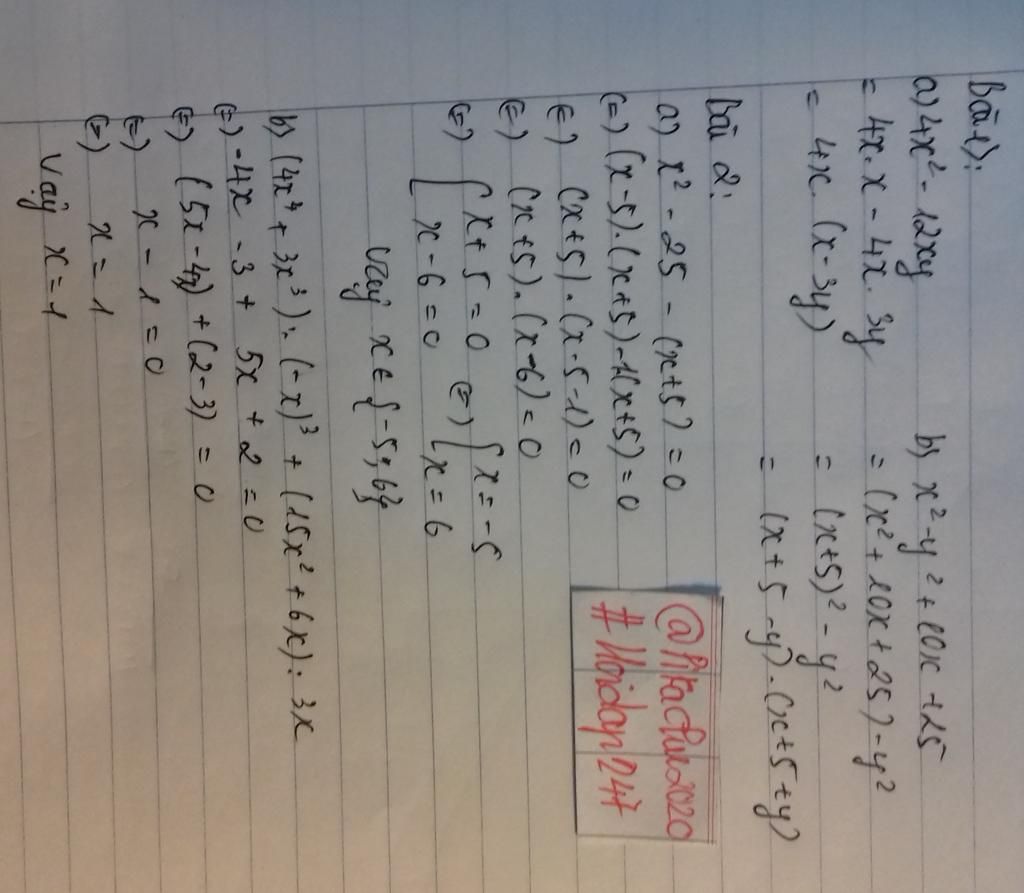 Bài 1:
a) 4x² - 12xy
= 4x.x - 4x.3y
= 4x.(x-3y)
b) x²-y²+10x+25
= (x²+10x+25)-y²
= (x+5)²-y²
= (x+5-y).(x+5+y)
Bài 2:
a) x² - 25 - (x+5) = 0
(=) (x-5).(x+5)-1(x+5) = 0
(=) (x+5).(x-5-1) = 0
(=) (x+5).(x-6) = 0
(=) [ x+5 = 0 (=) [ x = -5
x-6 = 0 x = 6
Vậy x ∈ {-5; 6}
b) (4x⁴ + 3x³) : (-x)³ + (15x² + 6x) : 3x
(=) -4x - 3 + 5x + 2 = 0
(=) (5x - 4x) + (2-3) = 0
(=) x - 1 = 0
(=) x = 1
Vậy x = 1
@Pikachu2020
# Hoidap247